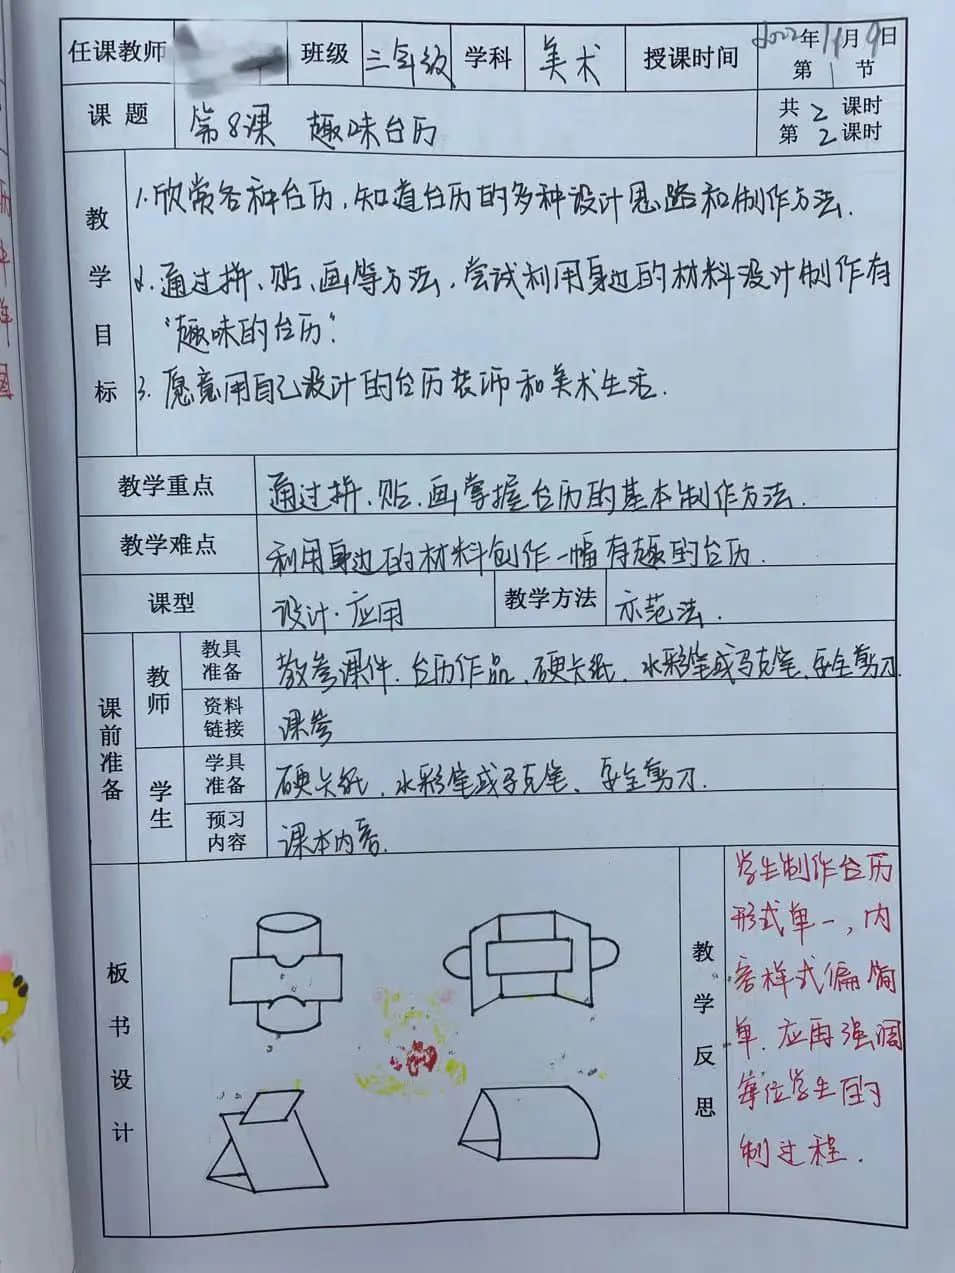 任课教师 班级 三年级 学科 美术 授课时间 2022年11月9日
第1节
课题 第8课 趣味台历 共2课时
第2课时
教学目标
1.欣赏各种台历,知道台历的多种设计思路和制作方法.
2.通过拼、贴、画等方法,尝试利用身边的材料设计制作有
“趣味的台历”.
3.愿意用自己设计的台历装饰和美术生活.
教学重点 通过拼、贴、画掌握台历的基本制作方法.
教学难点 利用身边的材料创作一幅有趣的台历.
课型 设计·应用 教学方法 示范法.
课前准备
教师
教具准备 教参课件、台历作品、硬卡纸、水彩笔或马克笔、安全剪刀.
资料链接 课参
学生
学具准备 硬卡纸、水彩笔或马克笔、安全剪刀.
预习内容 课本内容.
板书设计
教学反思
学生制作台历
形式单一,内
容样式偏简
单.应再强调
每位学生的
制过程.